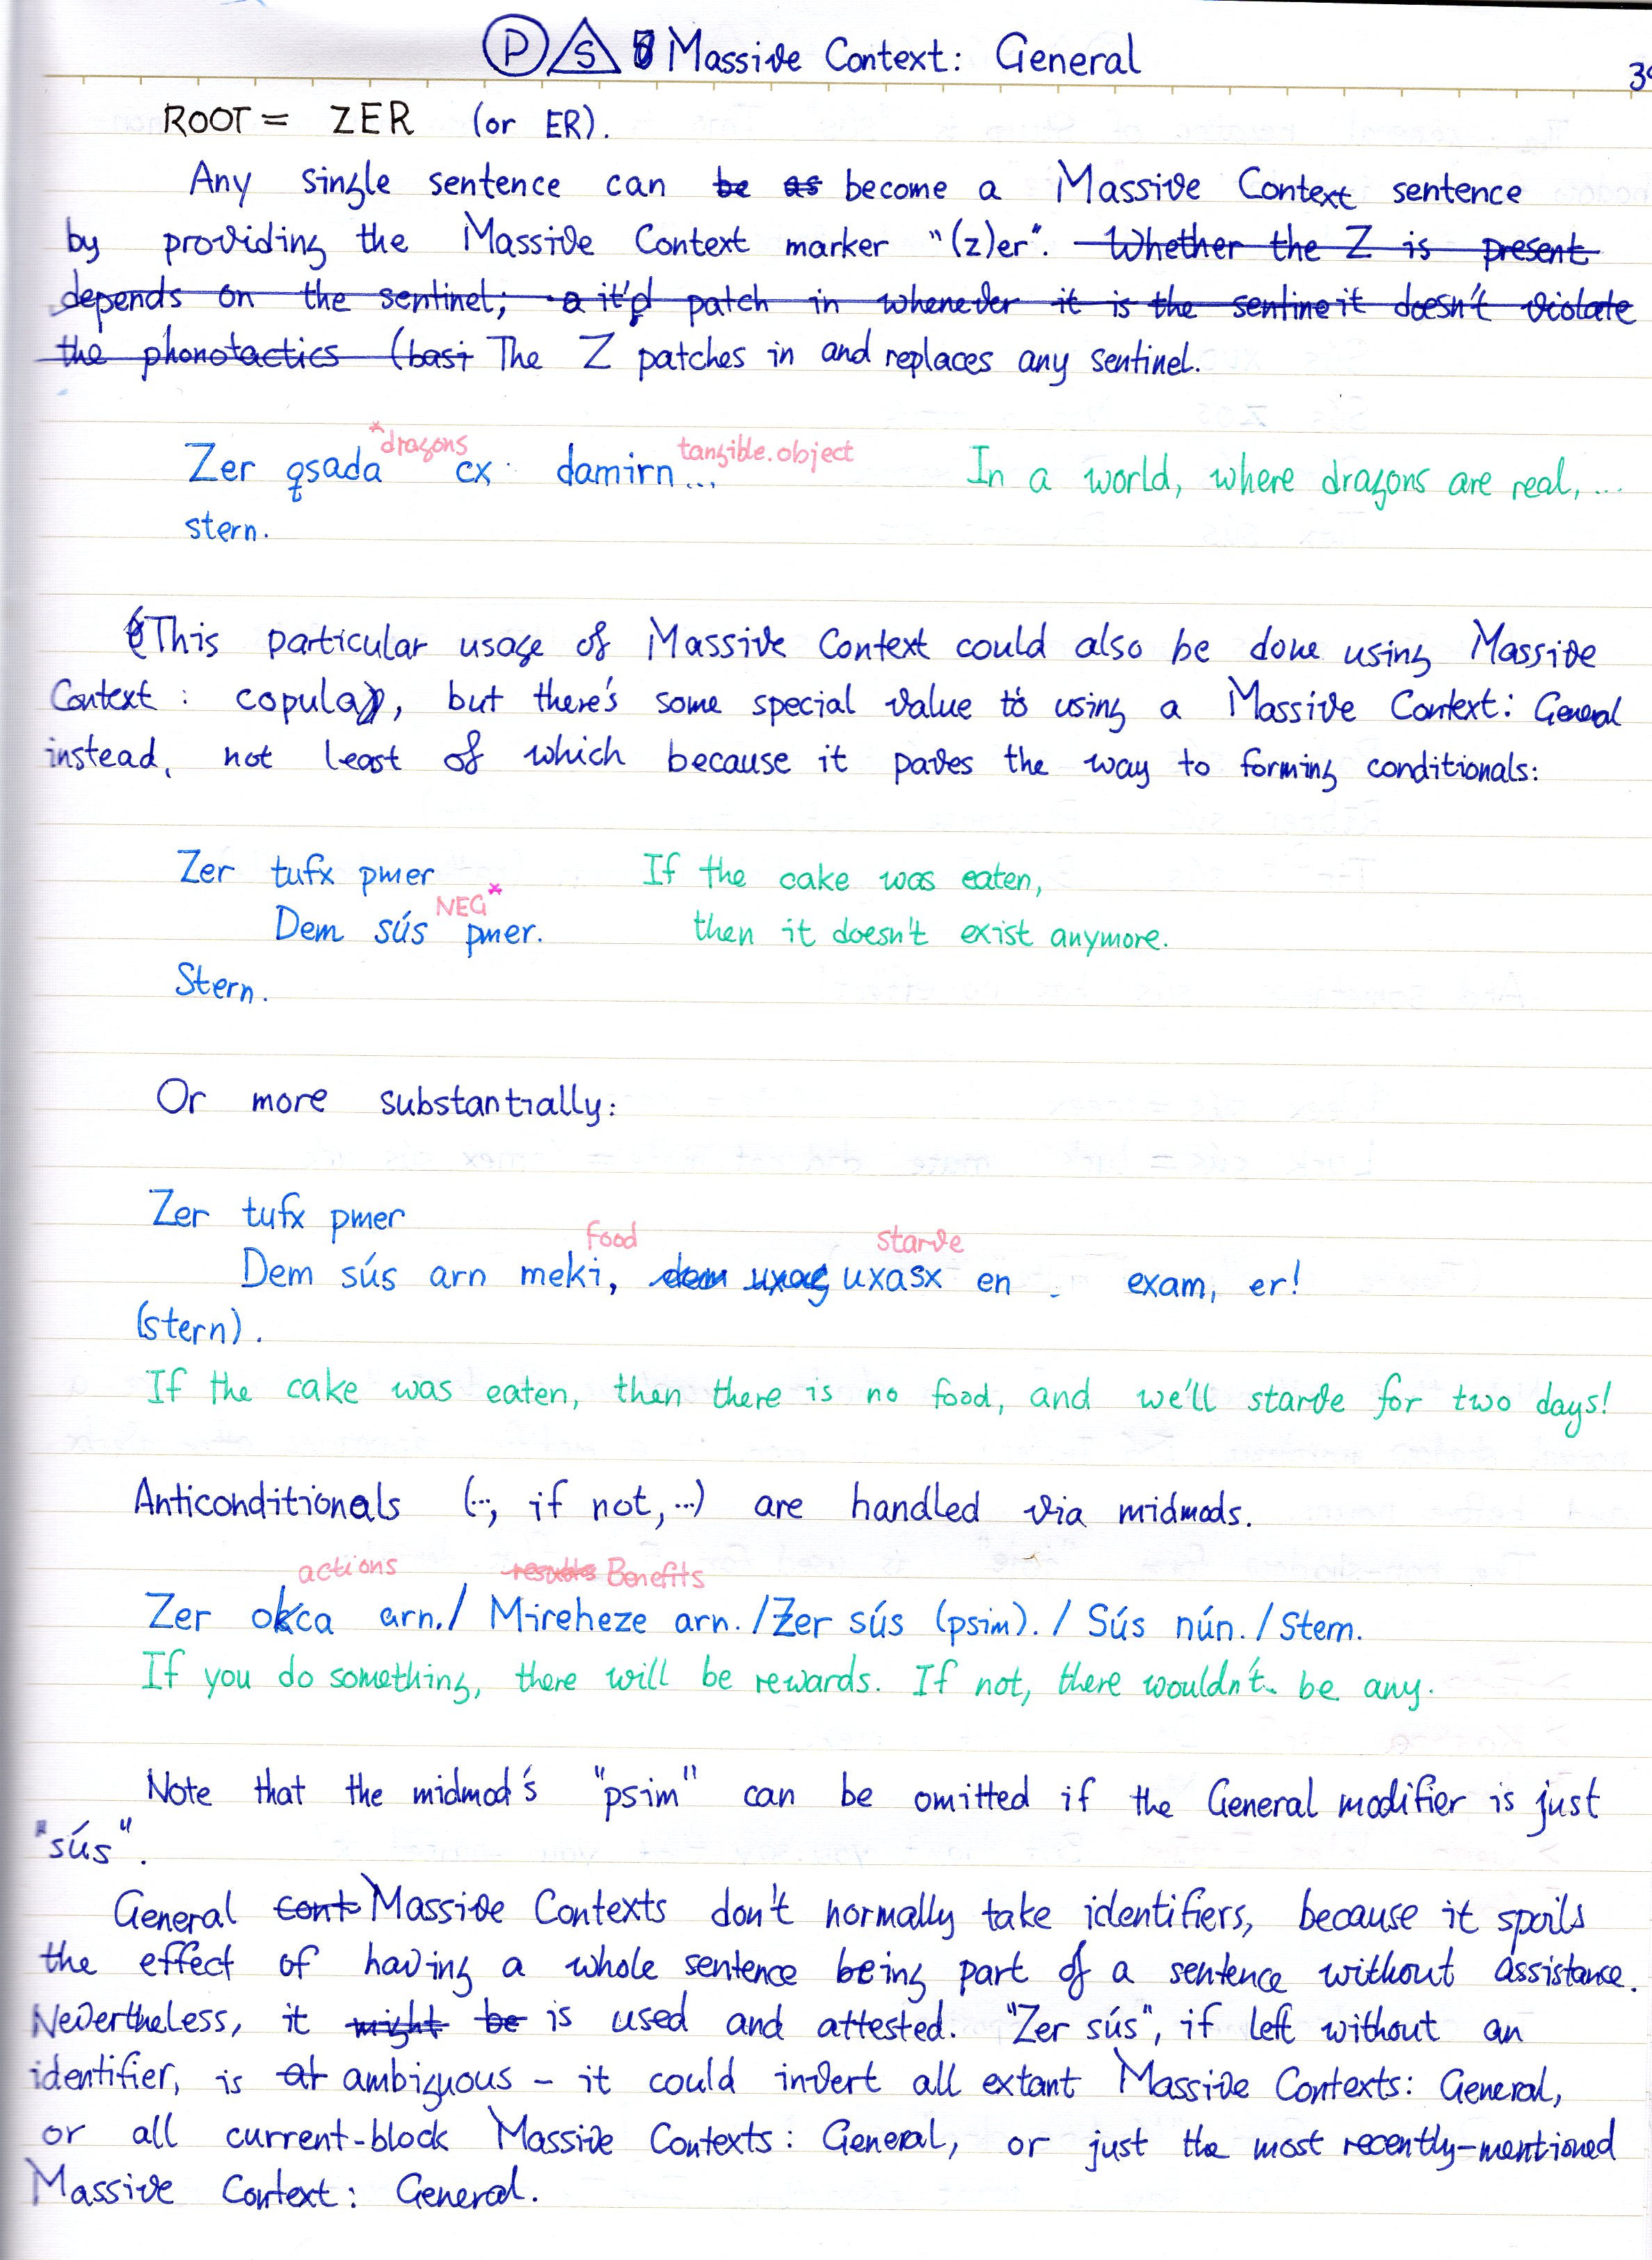 P S Massive Context: General
39
ROOT = ZER (or ER).
Any single sentence can be as become a Massive Context sentence
by providing the Massive Context marker "(z)er". Whether the Z is present
depends on the sentinel; a it'd patch in whenever it is the sentine it doesn't violate
the phonotactics (basi The Z patches in and replaces any sentinel.
*dragons tangible.object
Zer qsada cx damirn... In a world, where dragons are real, ...
stern.
This particular usage of Massive Context could also be done using Massive
Context: copula), but there's some special value to using a Massive Context: General
instead, not least of which because it paves the way to forming conditionals:
Zer tufx pmer If the cake was eaten,
NEG*
Dem sús pmer. then it doesn't exist anymore.
Stern.
Or more substantially:
Zer tufx pmer
food starve
Dem sús arn meki, dem uxag uxasx en exam, er!
(stern).
If the cake was eaten, then there is no food, and we'll starve for two days!
Anticonditionals (..., if not, ...) are handled via midmods.
actions results Benefits
Zer okca arn./ Mireheze arn. /Zer sús (psim). / Sús nún. / Stern.
If you do something, there will be rewards. If not, there wouldn't be any.
Note that the midmod's "psim" can be omitted if the General modifier is just
"sús".
General cont Massive Contexts don't normally take identifiers, because it spoils
the effect of having a whole sentence being part of a sentence without assistance.
Nevertheless, it might be is used and attested. "Zer sús", if left without an
identifier, is at ambiguous – it could invert all extant Massive Contexts: General,
or all current-block Massive Contexts: General, or just the most recently-mentioned
Massive Context: General.